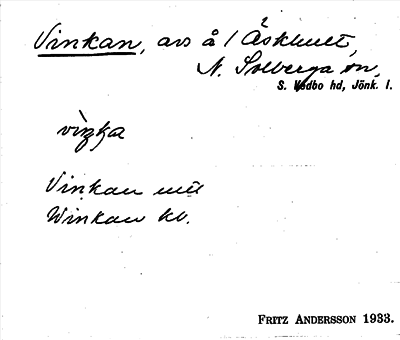 Vinkan, avs å / Äskhult,
N. Solberga sn,
S. Vedbo hd, Jönk. l.
Vinkan
Winkan kv.
FRITZ ANDERSSON 1933.